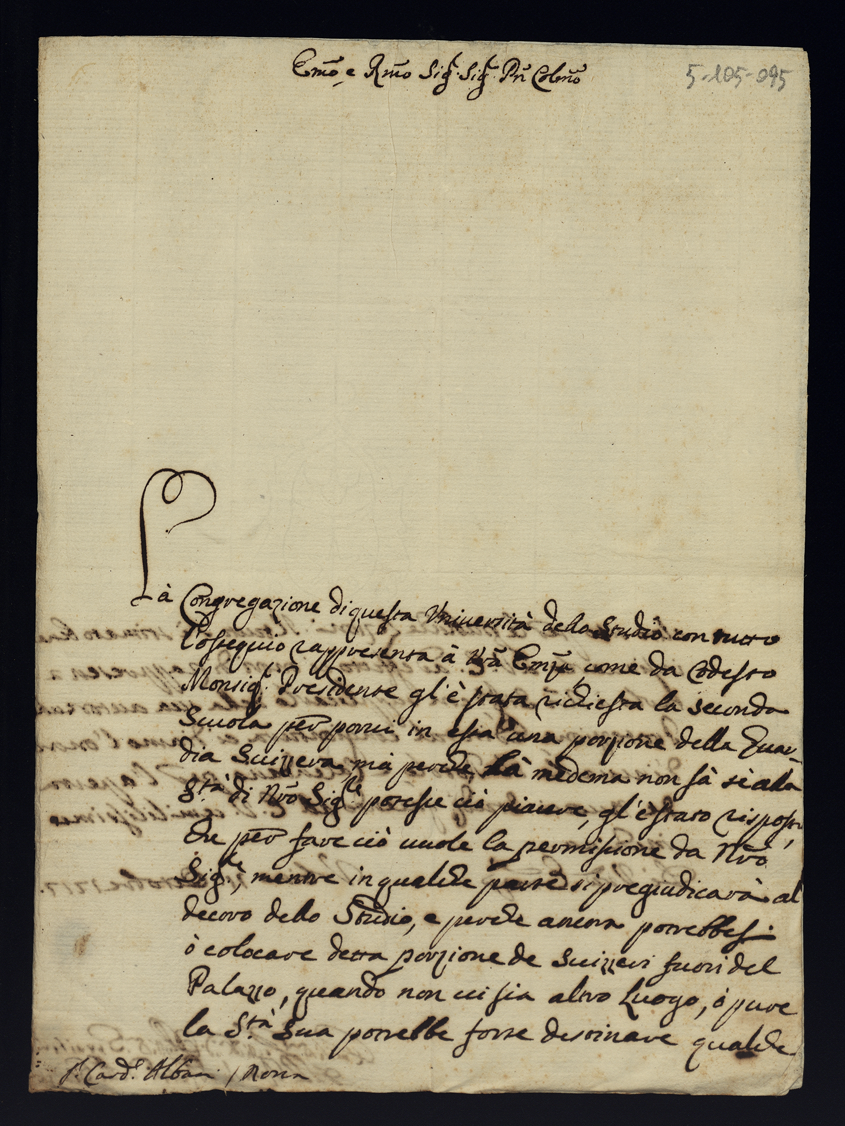 Emo, e Rmo Sigr. Sigr. Pñ Colmo
5-105-095
Là Congregazione di questa Università dello Studio con tutto
l'ossequio rappresenta à Vra Emza, come da codesto
Monsigr. Presidente gl'è stata richiesta la seconda
Scuola per porui in essa una porzione della Guar-
dia Suizzera, mà perche la medema non sà se alla
Stà di Nrõ Sigre potesse ciò piacere, gl'è stato risposto,
che per fare ciò uuole la permissione da Nrõ
Sigre, mentre in qualche parte si pregiudicarà al
decoro dello Studio, e perche ancora potrebbesi
ò colocare detta porzione de Suizzeri fuori del
Palazzo, quando non ui sia altro Luogo, ò pure
la Stà Sua potrebbe forse destinare qualche
Sr. Card.l Albani / Roma